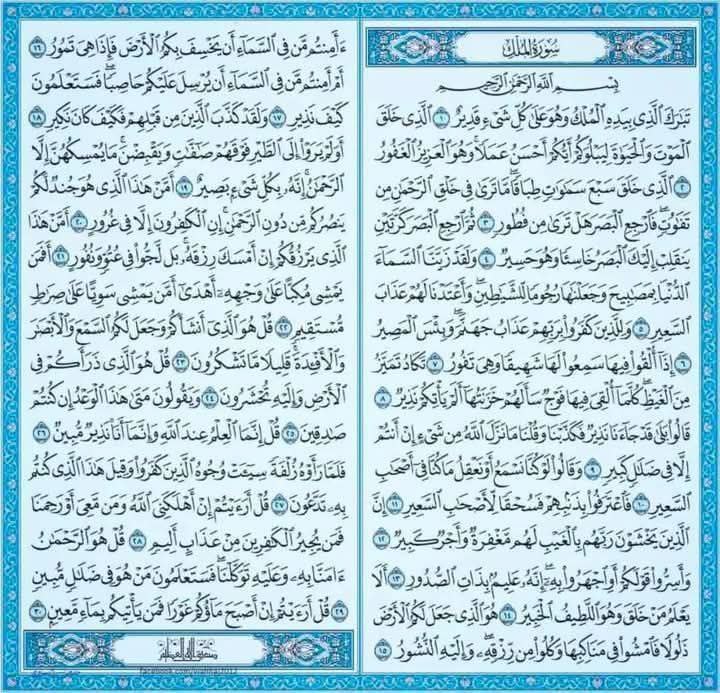 سُورَةُ الْمُلْكِ
بِسْمِ اللَّهِ الرَّحْمَٰنِ الرَّحِيمِ
تَبَارَكَ الَّذِي بِيَدِهِ الْمُلْكُ وَهُوَ عَلَىٰ كُلِّ شَيْءٍ قَدِيرٌ ١ الَّذِي خَلَقَ
الْمَوْتَ وَالْحَيَاةَ لِيَبْلُوَكُمْ أَيُّكُمْ أَحْسَنُ عَمَلًا ۚ وَهُوَ الْعَزِيزُ الْغَفُورُ
٢ الَّذِي خَلَقَ سَبْعَ سَمَاوَاتٍ طِبَاقًا ۖ مَّا تَرَىٰ فِي خَلْقِ الرَّحْمَٰنِ مِن
تَفَاوُتٍ ۖ فَارْجِعِ الْبَصَرَ هَلْ تَرَىٰ مِن فُطُورٍ ٣ ثُمَّ ارْجِعِ الْبَصَرَ كَرَّتَيْنِ
يَنقَلِبْ إِلَيْكَ الْبَصَرُ خَاسِئًا وَهُوَ حَسِيرٌ ٤ وَلَقَدْ زَيَّنَّا السَّمَاءَ
الدُّنْيَا بِمَصَابِيحَ وَجَعَلْنَاهَا رُجُومًا لِّلشَّيَاطِينِ ۖ وَأَعْتَدْنَا لَهُمْ عَذَابَ
السَّعِيرِ ٥ وَلِلَّذِينَ كَفَرُوا بِرَبِّهِمْ عَذَابُ جَهَنَّمَ ۖ وَبِئْسَ الْمَصِيرُ
٦ إِذَا أُلْقُوا فِيهَا سَمِعُوا لَهَا شَهِيقًا وَهِيَ تَفُورُ ٧ تَكَادُ تَمَيَّزُ
مِنَ الْغَيْظِ ۖ كُلَّمَا أُلْقِيَ فِيهَا فَوْجٌ سَأَلَهُمْ خَزَنَتُهَا أَلَمْ يَأْتِكُمْ نَذِيرٌ ٨
قَالُوا بَلَىٰ قَدْ جَاءَنَا نَذِيرٌ فَكَذَّبْنَا وَقُلْنَا مَا نَزَّلَ اللَّهُ مِن شَيْءٍ إِنْ أَنتُمْ
إِلَّا فِي ضَلَالٍ كَبِيرٍ ٩ وَقَالُوا لَوْ كُنَّا نَسْمَعُ أَوْ نَعْقِلُ مَا كُنَّا فِي أَصْحَابِ
السَّعِيرِ ١٠ فَاعْتَرَفُوا بِذَنبِهِمْ فَسُحْقًا لِّأَصْحَابِ السَّعِيرِ ١١ إِنَّ
الَّذِينَ يَخْشَوْنَ رَبَّهُم بِالْغَيْبِ لَهُم مَّغْفِرَةٌ وَأَجْرٌ كَبِيرٌ ١٢
وَأَسِرُّوا قَوْلَكُمْ أَوِ اجْهَرُوا بِهِ ۖ إِنَّهُ عَلِيمٌ بِذَاتِ الصُّدُورِ ١٣ أَلَا
يَعْلَمُ مَنْ خَلَقَ وَهُوَ اللَّطِيفُ الْخَبِيرُ ١٤ هُوَ الَّذِي جَعَلَ لَكُمُ الْأَرْضَ
ذَلُولًا فَامْشُوا فِي مَنَاكِبِهَا وَكُلُوا مِن رِّزْقِهِ ۖ وَإِلَيْهِ النُّشُورُ ١٥
ءَأَمِنتُم مَّن فِي السَّمَاءِ أَن يَخْسِفَ بِكُمُ الْأَرْضَ فَإِذَا هِيَ تَمُورُ ١٦
أَمْ أَمِنتُم مَّن فِي السَّمَاءِ أَن يُرْسِلَ عَلَيْكُمْ حَاصِبًا ۖ فَسَتَعْلَمُونَ
كَيْفَ نَذِيرِ ١٧ وَلَقَدْ كَذَّبَ الَّذِينَ مِن قَبْلِهِمْ فَكَيْفَ كَانَ نَكِيرِ ١٨
أَوَلَمْ يَرَوْا إِلَى الطَّيْرِ فَوْقَهُمْ صَافَّاتٍ وَيَقْبِضْنَ ۚ مَا يُمْسِكُهُنَّ إِلَّا
الرَّحْمَٰنُ ۚ إِنَّهُ بِكُلِّ شَيْءٍ بَصِيرٌ ١٩ أَمَّنْ هَٰذَا الَّذِي هُوَ جُندٌ لَّكُمْ
يَنصُرُكُم مِّن دُونِ الرَّحْمَٰنِ ۚ إِنِ الْكَافِرُونَ إِلَّا فِي غُرُورٍ ٢٠ أَمَّنْ هَٰذَا
الَّذِي يَرْزُقُكُمْ إِنْ أَمْسَكَ رِزْقَهُ ۚ بَل لَّجُّوا فِي عُتُوٍّ وَنُفُورٍ ٢١ أَفَمَن
يَمْشِي مُكِبًّا عَلَىٰ وَجْهِهِ أَهْدَىٰ أَمَّن يَمْشِي سَوِيًّا عَلَىٰ صِرَاطٍ
مُّسْتَقِيمٍ ٢٢ قُلْ هُوَ الَّذِي أَنشَأَكُمْ وَجَعَلَ لَكُمُ السَّمْعَ وَالْأَبْصَارَ
وَالْأَفْئِدَةَ ۖ قَلِيلًا مَّا تَشْكُرُونَ ٢٣ قُلْ هُوَ الَّذِي ذَرَأَكُمْ فِي
الْأَرْضِ وَإِلَيْهِ تُحْشَرُونَ ٢٤ وَيَقُولُونَ مَتَىٰ هَٰذَا الْوَعْدُ إِن كُنتُمْ
صَادِقِينَ ٢٥ قُلْ إِنَّمَا الْعِلْمُ عِندَ اللَّهِ وَإِنَّمَا أَنَا نَذِيرٌ مُّبِينٌ ٢٦
فَلَمَّا رَأَوْهُ زُلْفَةً سِيئَتْ وُجُوهُ الَّذِينَ كَفَرُوا وَقِيلَ هَٰذَا الَّذِي كُنتُم
بِهِ تَدَّعُونَ ٢٧ قُلْ أَرَأَيْتُمْ إِنْ أَهْلَكَنِيَ اللَّهُ وَمَن مَّعِيَ أَوْ رَحِمَنَا
فَمَن يُجِيرُ الْكَافِرِينَ مِنْ عَذَابٍ أَلِيمٍ ٢٨ قُلْ هُوَ الرَّحْمَٰنُ
ءَامَنَّا بِهِ وَعَلَيْهِ تَوَكَّلْنَا ۖ فَسَتَعْلَمُونَ مَنْ هُوَ فِي ضَلَالٍ مُّبِينٍ
٢٩ قُلْ أَرَأَيْتُمْ إِنْ أَصْبَحَ مَاؤُكُمْ غَوْرًا فَمَن يَأْتِيكُم بِمَاءٍ مَّعِينٍ ٣٠
صدق الله العظيم